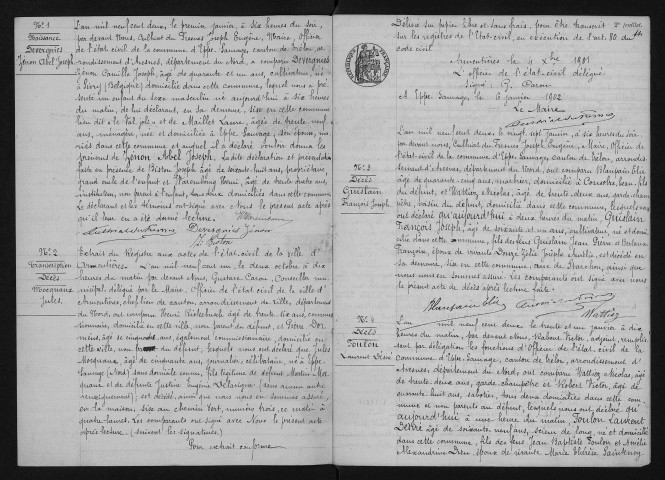 No. 1
Naissance
Devergnies
Zénon Abel Joseph
L'an mil neuf cent deux, le premier janvier, à six heures du soir,
par devant Nous, Culliart du Fresnes Joseph Eugène, Maire, officier
de l'état civil de la commune d'Eppe Sauvage, canton de Trélon, ar-
rondissement d'Avesnes, département du Nord, a comparu Devergnies
Zénon Camille Joseph, âgé de quarante et un ans, cultivateur, né
à Sivry (Belgique) domicilié dans cette commune, lequel nous a pré-
senté un enfant du sexe masculin né aujourd'hui à six heures
du matin, de lui déclarant, en sa demeure, sise en cette commune
lieu dit le et de Maillet Laure, âgée de trente neuf
ans, ménagère, née et domiciliée à Eppe Sauvage, son épouse, ma-
riés dans cette commune, et auquel il a déclaré vouloir donner les
prénoms de Zénon Abel Joseph. Ladite déclaration et présentation
faite en présence de Biston Joseph âgé de soixante huit ans, propriétaire,
grand oncle de l'enfant et âgé de trente ans,
instituteur, non parent à l'enfant, tous deux domiciliés dans cette commune
Le déclarant et les témoins ont signé avec Nous le présent acte après
qu'il leur en a été donné lecture.
Devergnies Zénon
J. Biston
No. 2
Transcription
Décès
Mocquant
Jules.
Extrait du Registre aux actes de l'état civil de la ville d'
Armentières. L'an mil neuf cent un, le douze octobre à dix
heures du matin par devant Nous, Gustave Caron Conseiller mu-
nicipal délégué par le Maire, Officier de l'état civil de la ville d'
Armentières, chef lieu de canton, arrondissement de Lille, département
du Nord, ont comparu Henri âgé de six ans, commis-
sionnaire, domicilié en cette ville, non parent du défunt, et Pierre Dor-
âgé de cinquante ans, également commissionnaire, domicilié en
cette ville, non du défunt, lesquels nous ont déclaré que Jules
Mocquant, âgé de cinquante ans, journalier, célibataire, né à Eppe
Sauvage (Nord) sans domicile connu, fils légitime de défunt Martin Moc-
quant et de défunte Justine Eugénie (sans aucun autre
renseignement); est décédé, ainsi que nous nous en sommes assuré,
en la maison, sise au chemin Vert, numéro trois, ce matin à
quatre heures. Les comparants ont signé avec Nous le présent acte
après lecture. (suivent les signatures.)
Pour extrait conforme
2e feuillet
Délivré sur papier libre et sans frais, pour être transcrit
sur les registres de l'état civil, en exécution de l'art. 80 du
code civil.
Armentières le 4 Xbre 1901
L'officier de l'état civil délégué
Signé: G. Caron
A Eppe Sauvage, le 6 janvier 1902
Le Maire
No. 3
Décès
Guislain
François Joseph
L'an mil neuf cent deux, le vingt sept janvier, à six heures du soir
par devant nous, Culliart du Fresnes Joseph Eugène, Maire, Officier de
l'état civil de la commune d'Eppe Sauvage, canton de Trélon, arrondis-
sement d'Avesnes, département du Nord, ont comparu Blanpain Elie
âgé de quarante cinq ans, marbrier, domicilié à Cousolre, beau-fils
du défunt, et Wattiez Nicolas, âgé de trente deux ans, garde cham-
pêtre, voisin du défunt, domicilié dans cette commune, lesquels nous
ont déclaré qu'aujourd'hui à deux heures du matin, Guislain
François Joseph, âgé de soixante et un ans, cultivateur, né et domi-
cilié dans cette commune, fils de feus Guislain Jean Pierre et
Françoise, époux de vivante Zélie Josèphe est décédé en
sa demeure, sise en cette commune, rue de ainsi que
nous nous en sommes assuré. Les comparants ont signé avec nous
le présent acte de décès après lecture faite.
Blanpain Elie
Wattiez
No. 4
Décès
Toulon
Laurent Désiré
L'an mil neuf cent deux, le trente et un janvier à dix
heures du matin, par devant Nous, Victor, adjoint, remplis-
sant par délégation les fonctions d'officier de l'état civil de la
commune d'Eppe Sauvage, canton de Trélon, arrondissement d'
Avesnes, département du Nord, ont comparu Wattiez Nicolas, âgé
de trente deux ans, garde champêtre et Robert Victor, âgé de
quarante huit ans, sabotier, tous deux domiciliés dans cette com-
mune et non parents au défunt, lesquels nous ont déclaré qu'
aujourd'hui à une heure du matin, Toulon Laurent
Désiré âgé de soixante neuf ans, scieur de long, né et domicilié
dans cette commune, fils de feus Jean Baptiste Toulon et Amélie
Alexandrine époux de vivante Marie Thérèse Saintenoy